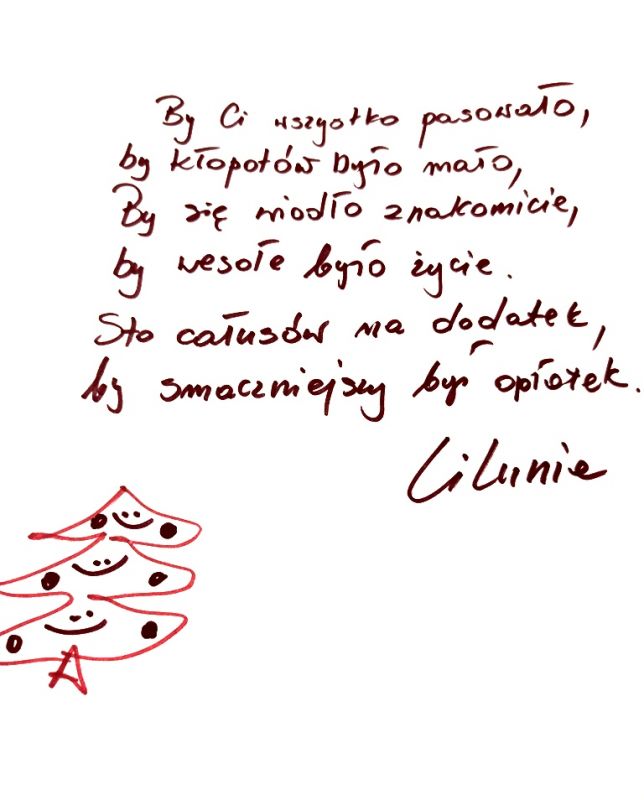 By Ci wszystko pasowało,
by kłopotów było mało,
By się wiodło znakomicie,
by wesołe było życie.
Sto całusów na dodatek,
by smaczniejszy był opłatek.